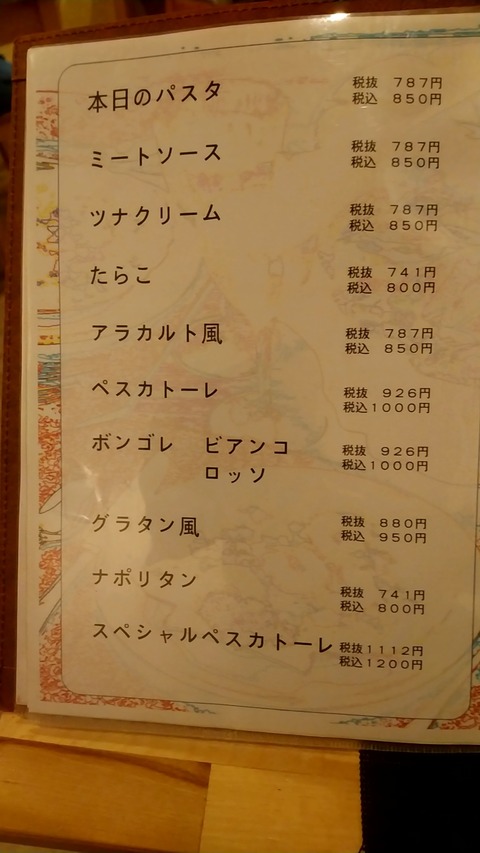 本日のパスタ 税抜 787円
税込 850円
ミートソース 税抜 787円
税込 850円
ツナクリーム 税抜 787円
税込 850円
たらこ 税抜 741円
税込 800円
アラカルト風 税抜 787円
税込 850円
ペスカトーレ 税抜 926円
税込1000円
ボンゴレ ビアンコ 税抜 926円
ロッソ 税込1000円
グラタン風 税抜 880円
税込 950円
ナポリタン 税抜 741円
税込 800円
スペシャルペスカトーレ 税抜1112円
税込1200円